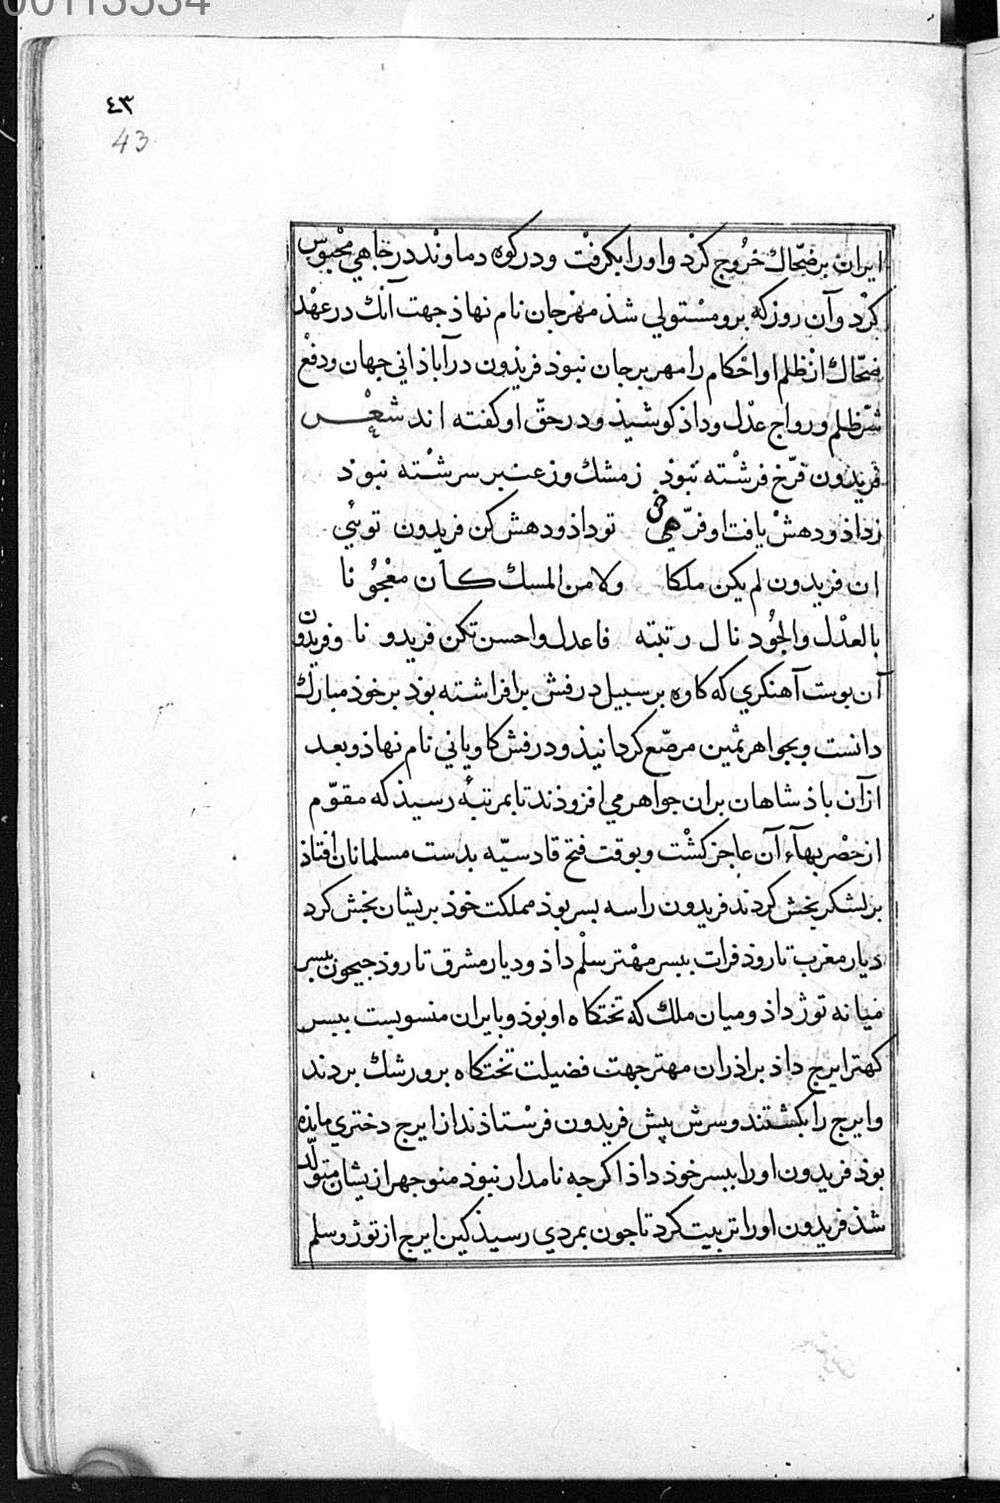 00113534
٤٣
43
ایران بر ضحّاك خرُوج کرْد و اورا بکرفْت و در کوه دماونْد در جاهي محْبوس
کرْد و آن روز که برو مسْتولي شذ مهْرجان نام نهاذ جهت آنك در عهْد
ضحّاك ازْ ظلم او احْکام را مهر بر جان نبوذ فریذون در آباذاني جهان و دفْع
شرّ ظلم و رواج عدْل و داذ کوشیذ و در حقّ او کفته اند شعْر
فریدون فرّخ فرشْته نبوذ زمشك و زعنبر سرشْته نبوذ
زداذ و دهشْ یافت او فرّهي تو داذ و دهش کن فریدون توئي
ان فریدون لم یکن ملکا ولا من المسك کان معْجُونا
بالعدْل والجُود نال رتبته فاعدل واحسن تکن فریدونا و فریدون
آن بوست آهنکري که کاوه بر سبیل درفش برافراشته بوذ بر خوذ مبارك
دانست و بجواهر ثمین مرصّع کردانیذ و درفش کاویاني نام نهاذ و بعد
از آن باذشاهان بران جواهر مي افزوذند تا بمرتبهٔ رسیذ که مقوّم
از حصْر بهاء آن عاجز کشْت و بوقت فتح قادسیّه بدست مسلمانان افتاذ
بر لشکر بخش کردند فریدون را سه بسر بوذ مملکت خوذ بریشان بخش کرد
دیار مغرب تا روذ فرات ببسر مهْتر سلْم داذ و دیار مشرق تا روذ جیحون ببسر
میانه توژ داذ و میان ملك که تختکاه او بوذ و بایران منسوبست ببسر
کهتر ایرج داذ براذران مهتر جهت فضیلت تختکاه برو رشك بردند
و ایرج را بکشتند و سرش پیش فریدون فرسْتاذند از ایرج دختري مانده
بوذ فریدون او را ببسر خوذ داذ اکرجه نامدار نبوذ منوجهر ازیشان متولّد
شذ فریدون او را تربیت کرد تا جون بمردي رسیذ کین ایرج از توژ و سلم